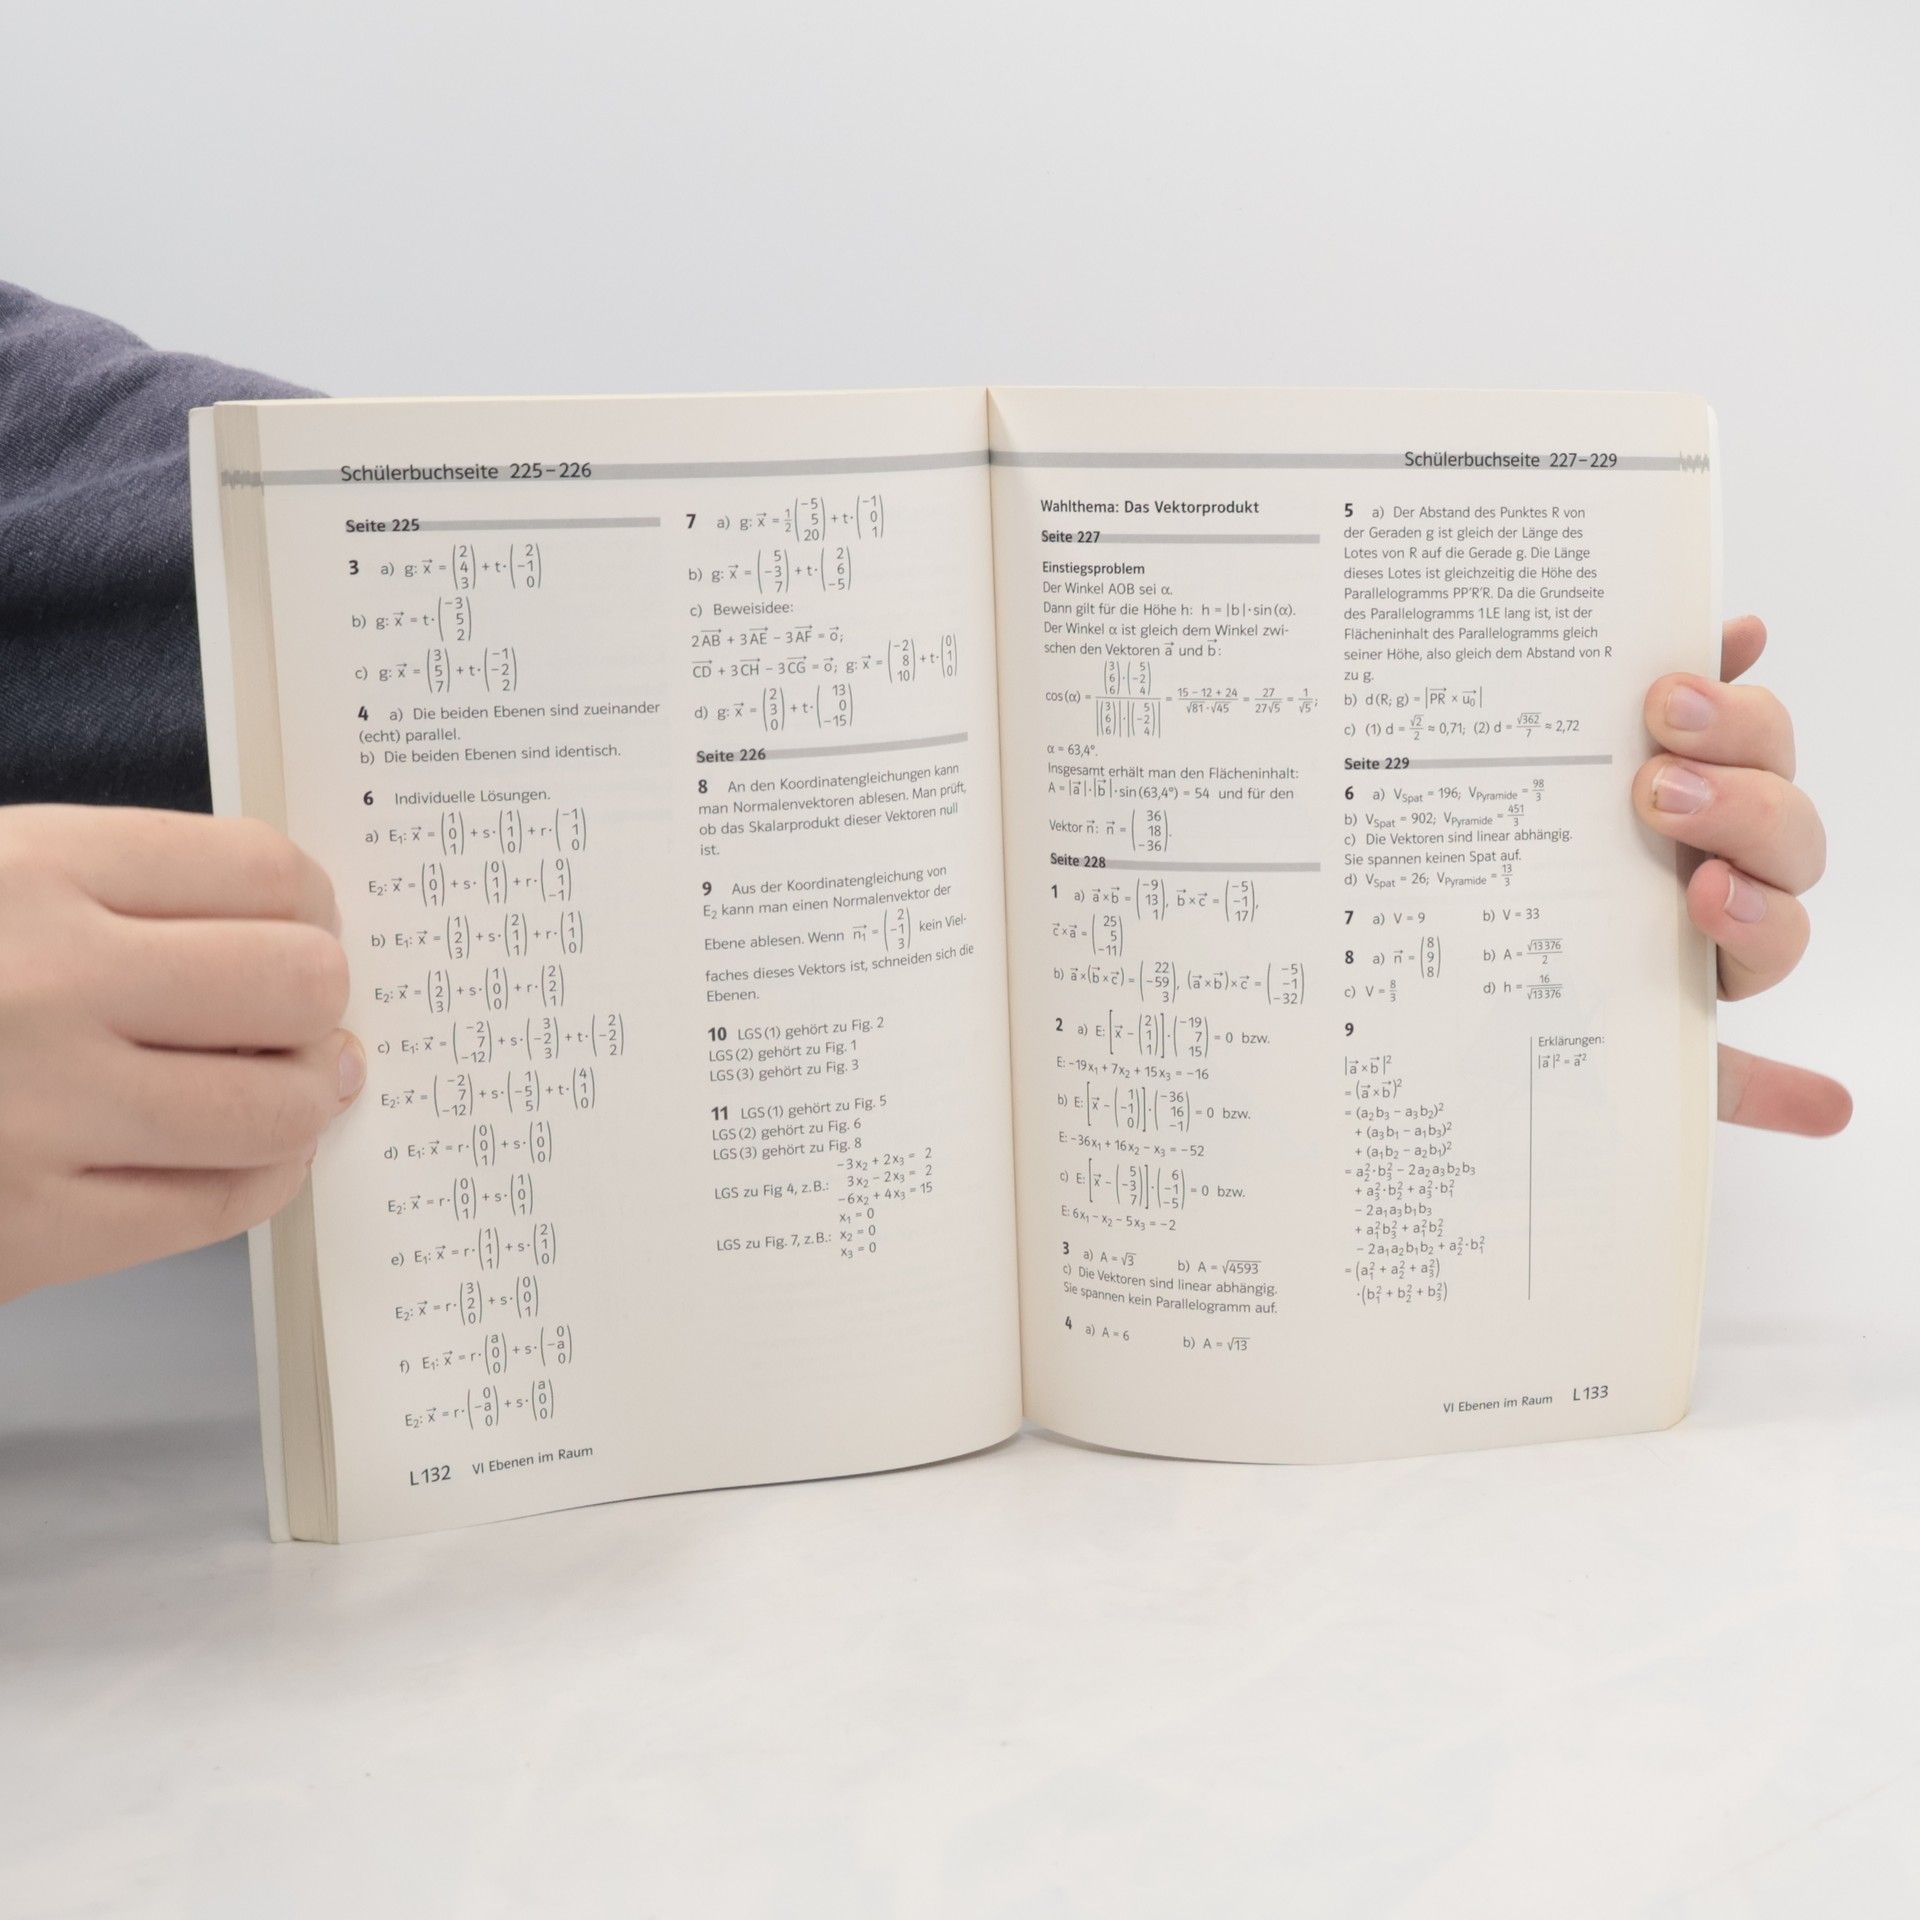 Schülerbuchseite 225–226
Seite 225
3 a) g: x⃗ = (2 4 3) + t·(2 −1 0)
b) g: x⃗ = t·(−3 5 2)
c) g: x⃗ = (3 5 7) + t·(−1 −2 2)
4 a) Die beiden Ebenen sind zueinander
(echt) parallel.
b) Die beiden Ebenen sind identisch.
6 Individuelle Lösungen.
a) E₁: x⃗ = (1 0 1) + s·(1 1 0) + r·(−1 1 0)
E₂: x⃗ = (1 0 1) + s·(0 1 1) + r·(0 1 −1)
b) E₁: x⃗ = (1 2 3) + s·(2 1 1) + r·(1 1 0)
E₂: x⃗ = (1 2 3) + s·(1 0 0) + r·(2 2 1)
c) E₁: x⃗ = (−2 7 −12) + s·(3 −2 3) + t·(−2 −2 2)
E₂: x⃗ = (−2 7 −12) + s·(1 −5 5) + t·(4 1 0)
d) E₁: x⃗ = r·(0 0 1) + s·(1 0 0)
E₂: x⃗ = r·(0 0 1) + s·(1 0 1)
e) E₁: x⃗ = r·(1 1 1) + s·(2 1 0)
E₂: x⃗ = r·(3 2 0) + s·(0 0 1)
f) E₁: x⃗ = r·(a 0 0) + s·(0 −a 0)
E₂: x⃗ = r·(0 −a 0) + s·(a 0 0)
L 132 VI Ebenen im Raum
7 a) g: x⃗ = 1/2 (−5 5 20) + t·(−1 0 1)
b) g: x⃗ = (5 −3 7) + t·(2 6 −5)
c) Beweisidee:
2AB⃗ + 3AE⃗ − 3AF⃗ = o⃗;
CD⃗ + 3CH⃗ − 3CG⃗ = o⃗; g: x⃗ = (−2 8 10) + t·(0 1 0)
d) g: x⃗ = (2 3 0) + t·(13 0 −15)
Seite 226
8 An den Koordinatengleichungen kann
man Normalenvektoren ablesen. Man prüft,
ob das Skalarprodukt dieser Vektoren null
ist.
9 Aus der Koordinatengleichung von
E₂ kann man einen Normalenvektor der
Ebene ablesen. Wenn n₁⃗ = (2 −1 3) kein Viel-
faches dieses Vektors ist, schneiden sich die
Ebenen.
10 LGS (1) gehört zu Fig. 2
LGS (2) gehört zu Fig. 1
LGS (3) gehört zu Fig. 3
11 LGS (1) gehört zu Fig. 5
LGS (2) gehört zu Fig. 6
LGS (3) gehört zu Fig. 8
−3x₂ + 2x₃ = 2
LGS zu Fig 4, z.B.: 3x₂ − 2x₃ = 2
−6x₂ + 4x₃ = 15
x₁ = 0
LGS zu Fig. 7, z.B.: x₂ = 0
x₃ = 0
Schülerbuchseite 227–229
Wahlthema: Das Vektorprodukt
Seite 227
Einstiegsproblem
Der Winkel AOB sei α.
Dann gilt für die Höhe h: h = |b|·sin(α).
Der Winkel α ist gleich dem Winkel zwi-
schen den Vektoren a⃗ und b⃗:
cos(α) = (3 6 6)·(5 −2 4) / |(3 6 6)|·|(5 −2 4)| = (15 − 12 + 24)/(√81·√45) = 27/(27√5) = 1/√5;
α = 63,4°.
Insgesamt erhält man den Flächeninhalt:
A = |a⃗|·|b⃗|·sin(63,4°) = 54 und für den
Vektor n⃗: n⃗ = (36 18 −36).
Seite 228
1 a) a⃗×b⃗ = (−9 13 1), b⃗×c⃗ = (−5 −1 17),
c⃗×a⃗ = (25 5 −11)
b) a⃗×(b⃗×c⃗) = (22 −59 3), (a⃗×b⃗)×c⃗ = (−5 −1 −32)
2 a) E: [x⃗ − (2 1 1)]·(−19 7 15) = 0 bzw.
E: −19x₁ + 7x₂ + 15x₃ = −16
b) E: [x⃗ − (1 −1 0)]·(−36 16 −1) = 0 bzw.
E: −36x₁ + 16x₂ − x₃ = −52
c) E: [x⃗ − (5 −3 7)]·(6 −1 −5) = 0 bzw.
E: 6x₁ − x₂ − 5x₃ = −2
3 a) A = √3 b) A = √4593
c) Die Vektoren sind linear abhängig.
Sie spannen kein Parallelogramm auf.
4 a) A = 6 b) A = √13
5 a) Der Abstand des Punktes R von
der Geraden g ist gleich der Länge des
Lotes von R auf die Gerade g. Die Länge
dieses Lotes ist gleichzeitig die Höhe des
Parallelogramms PP′R′R. Da die Grundseite
des Parallelogramms 1LE lang ist, ist der
Flächeninhalt des Parallelogramms gleich
seiner Höhe, also gleich dem Abstand von R
zu g.
b) d(R; g) = |PR⃗ × u₀⃗|
c) (1) d = √2/2 ≈ 0,71; (2) d = √362/7 ≈ 2,72
Seite 229
6 a) V_Spat = 196; V_Pyramide = 98/3
b) V_Spat = 902; V_Pyramide = 451/3
c) Die Vektoren sind linear abhängig.
Sie spannen keinen Spat auf.
d) V_Spat = 26; V_Pyramide = 13/3
7 a) V = 9 b) V = 33
8 a) n⃗ = (8 9 8) b) A = √13376/2
c) V = 8/3 d) h = 16/√13376
9
Erklärungen:
|a⃗×b⃗|² |a⃗|² = a⃗²
= (a⃗×b⃗)²
= (a₂b₃ − a₃b₂)²
+ (a₃b₁ − a₁b₃)²
+ (a₁b₂ − a₂b₁)²
= a₂²·b₃² − 2a₂a₃b₂b₃
+ a₃²·b₂² + a₃²·b₁²
− 2a₁a₃b₁b₃
+ a₁²b₃² + a₁²b₂²
− 2a₁a₂b₁b₂ + a₂²·b₁²
= (a₁² + a₂² + a₃²)
·(b₁² + b₂² + b₃²)
VI Ebenen im Raum L 133